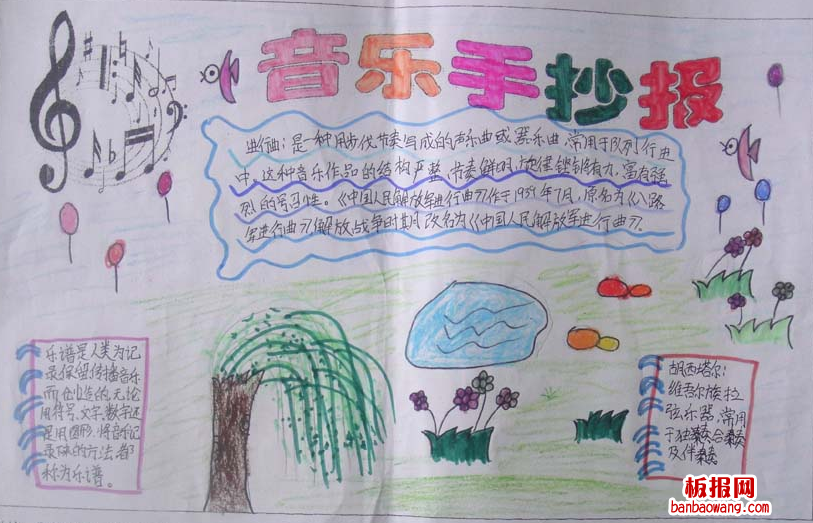 音乐手抄报
进行曲：是一种用步伐节奏写成的声乐曲或器乐曲，常用于队列行进
中，这种音乐作品的结构严整，节奏鲜明，旋律铿锵有力，富有强
烈的号召性。《中国人民解放军进行曲》作于1939年7月，原名为《八路
军进行曲》，解放战争时期，改名为《中国人民解放军进行曲》。
乐谱是人类为记
录保留传播音乐
而创造的，无论
用符号、文字、数字还
是用图形，将音乐记
录下来的方法，都
称为乐谱。
胡西塔尔：
维吾尔族拉
弦乐器，常用
于独奏、合奏
及伴奏
板报网
banbaowang.com